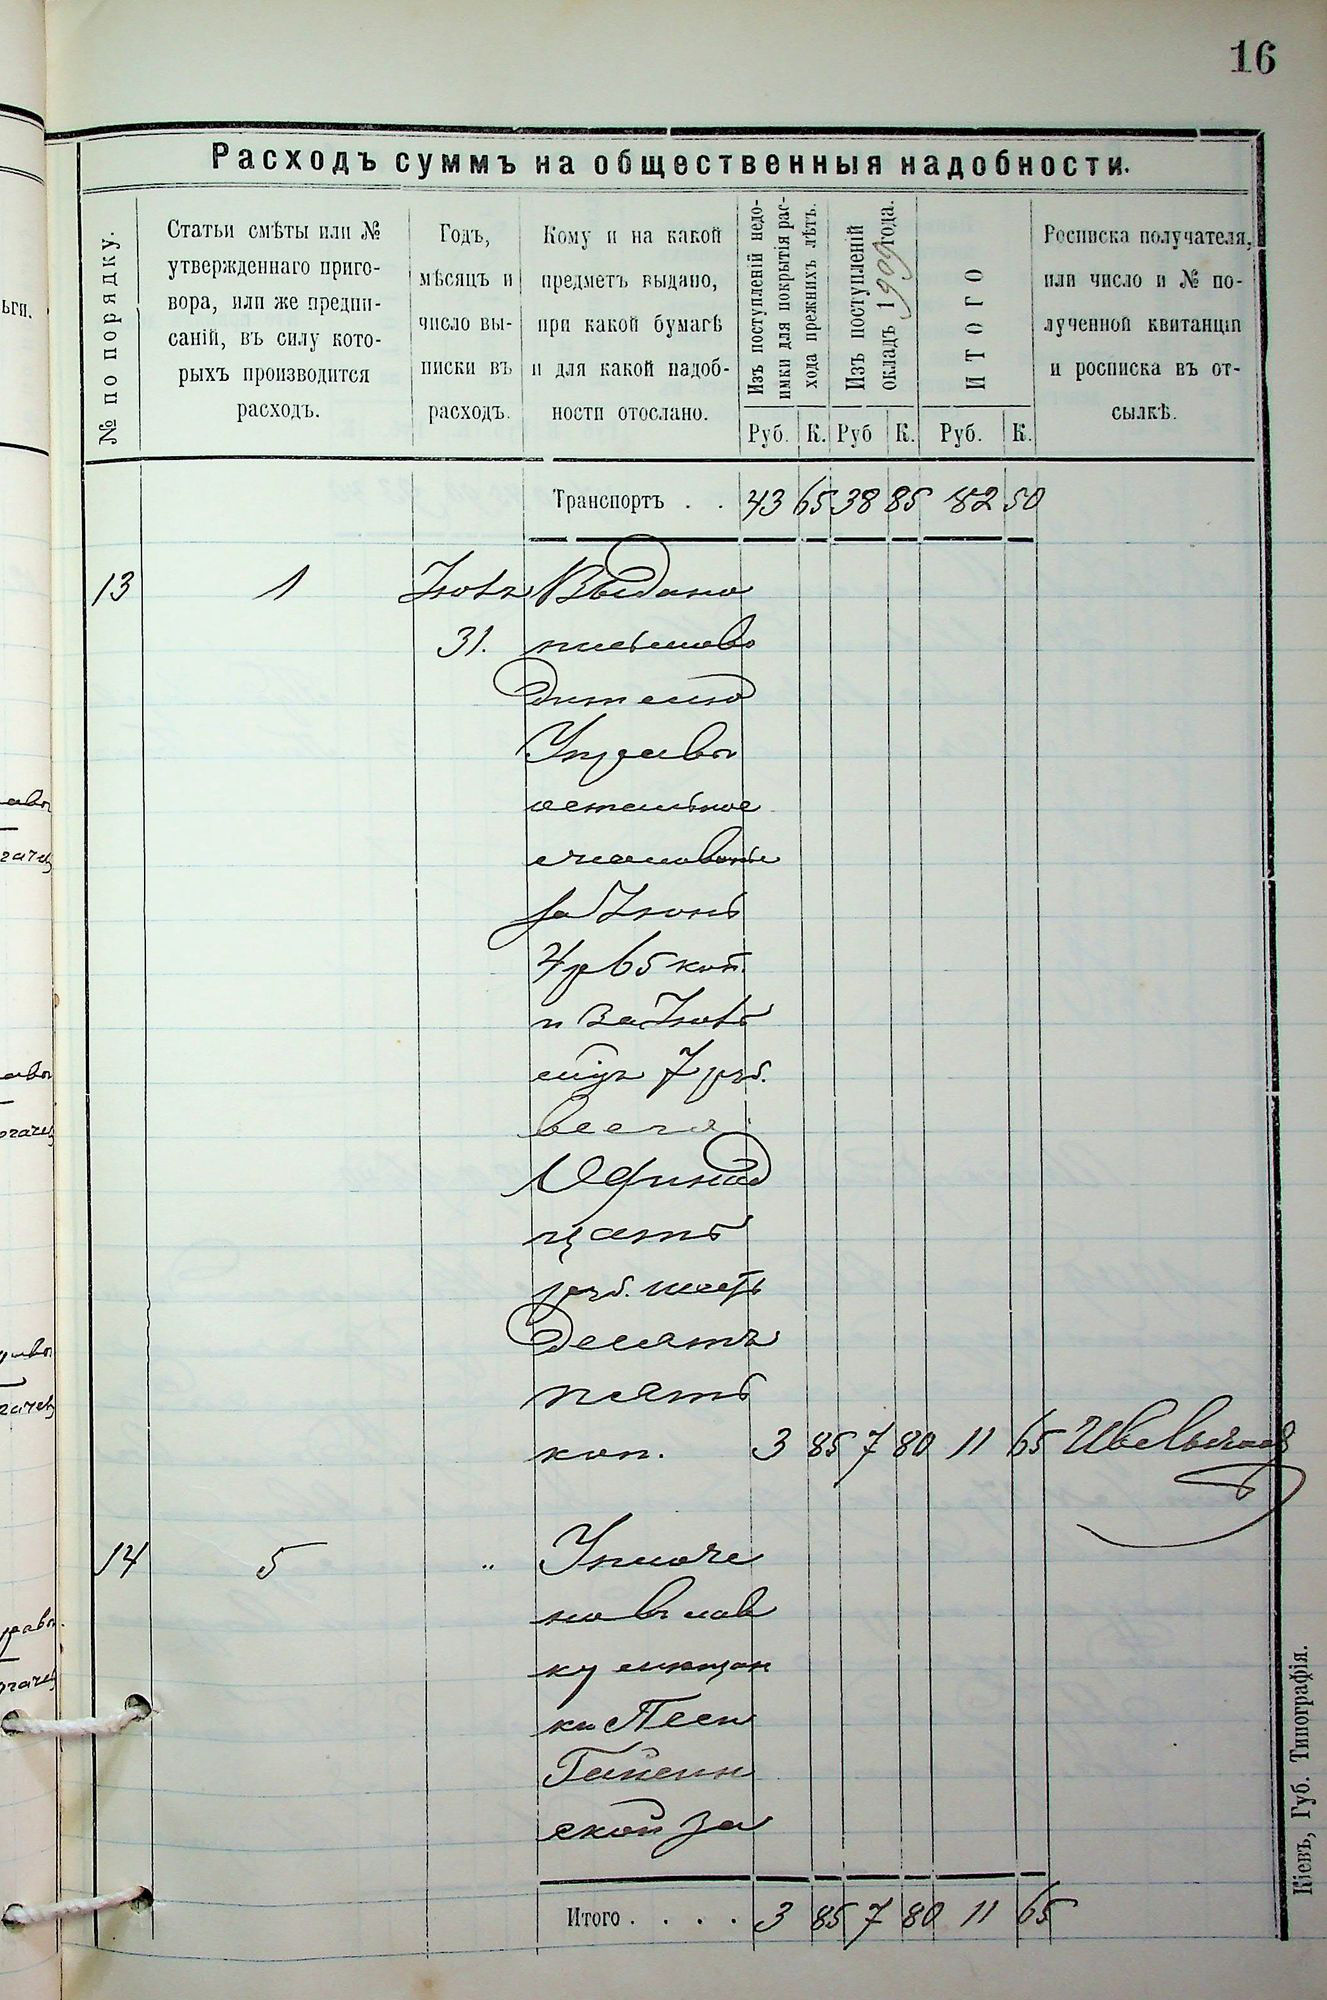 16
Расходъ суммъ на общественныя надобности.
№ по порядку.
Статьи смѣты или №
утвержденнаго приго-
вора, или же предпи-
саній, въ силу кото-
рыхъ производится
расходъ.
Годъ,
мѣсяцъ и
число вы-
писки въ
расходъ.
Кому и на какой
предметъ выдано,
при какой бумагѣ
и для какой надоб-
ности отослано.
Изъ поступленій недо-
имки для покрытія рас-
хода прежнихъ лѣтъ.
Изъ поступленій
окладъ 1909 года.
ИТОГО
Росписка получателя,
или число и № по-
лученной квитанціи
и росписка въ от-
сылкѣ.
Руб. К. Руб К. Руб. К.
Транспортъ . . 43 65 38 85 82 50
13 1 Іюля Выдано
31. письмово
дителю
Управы
остальное
жалованье
за Іюнь
4 р 65 коп.
и за Іюль
7 руб.
всего
Одинад
цать
руб. шесть
десятъ
пять
коп. 3 85 7 80 11 65
14 5 " Уплоче
но въ лав
ку мещан
ки Песи
ской за
Итого . . . . 3 85 7 80 11 65
Кіевъ, Губ. Типографія.